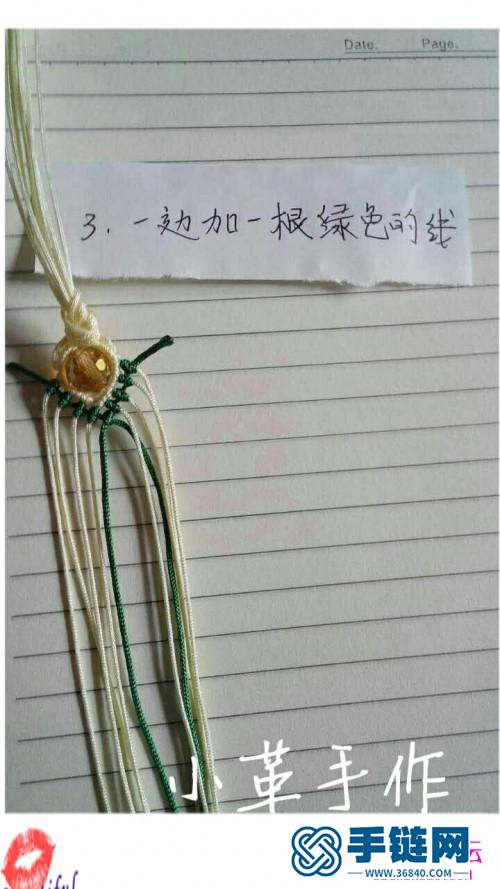 Date. Page.
3. 一边加一根绿色的线
小革手作
手链网
www.36840.com